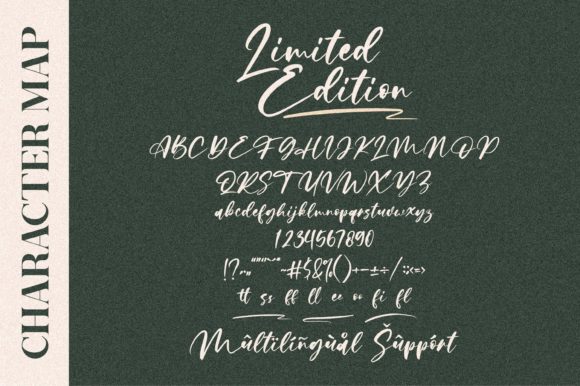 CHARACTER MAP
Limited
Edition
ABCDEFGHIJKLMNOP
QRSTUVWXYZ
abcdefghijklmnopqrstuvwxyz
1234567890
tt ss ff ll ee oo fi fl
Mûltïlíñgùål Šûppórt